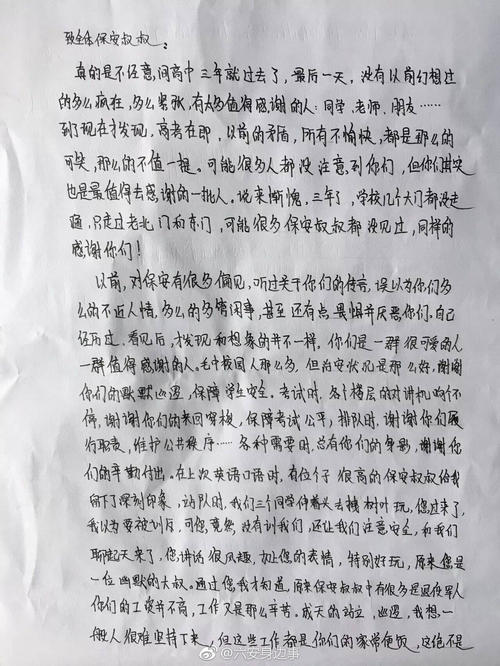 致全体保安叔叔:
真的是不经意间高中三年就过去了,最后一天,没有以前幻想过
的多么疯狂,多么紧张,有太多值得感谢的人:同学、老师、朋友……
到了现在才发现,高考在即,以前的矛盾,所有不愉快,都是那么的
可笑,那么的不值一提。可能很多人都没注意到你们,但你们其实
也是最值得去感谢的一批人。说来惭愧,三年了,学校几个大门都没走
遍,只走过老北门和东门,可能很多保安叔叔都没见过,同样的
感谢你们!
以前,对保安有很多偏见,听过关于你们的传言,误以为你们多
么的不近人情,多么的多管闲事,甚至还有点畏惧并厌恶你们。自己
经历过,看见后,才发现和想象的并不一样,你们是一群很可爱的人
一群值得感谢的人。毛中校园人那么多,但治安状况是那么好,谢谢
你们的默默巡逻,保障学生安全。考试时,各个楼层的对讲机响个不
停,谢谢你们的来回穿梭,保障考试公平,排队时,谢谢你们履
行职责,维护公共秩序……各种需要时,总有你们的身影,谢谢你
们的辛勤付出。在上次英语口语时,有位个子很高的保安叔叔给我
留下了深刻印象,站队时,我们三个同学伸着头去摘树叶玩,您过来了,
我以为要被训后,可您竟然没有训我们,还让我们注意安全,和我们
聊起天来了,您讲话很风趣,加上您的表情,特别好玩,原来您是
一位幽默的大叔。通过您我才知道,原来保安叔叔中有很多是退伍军人
你们的工资并不高,工作又是那么辛苦。成天的站立,巡逻,我想一
般人很难坚持下来,但这些工作都是你们的家常便饭,这绝不是
@六安身边事